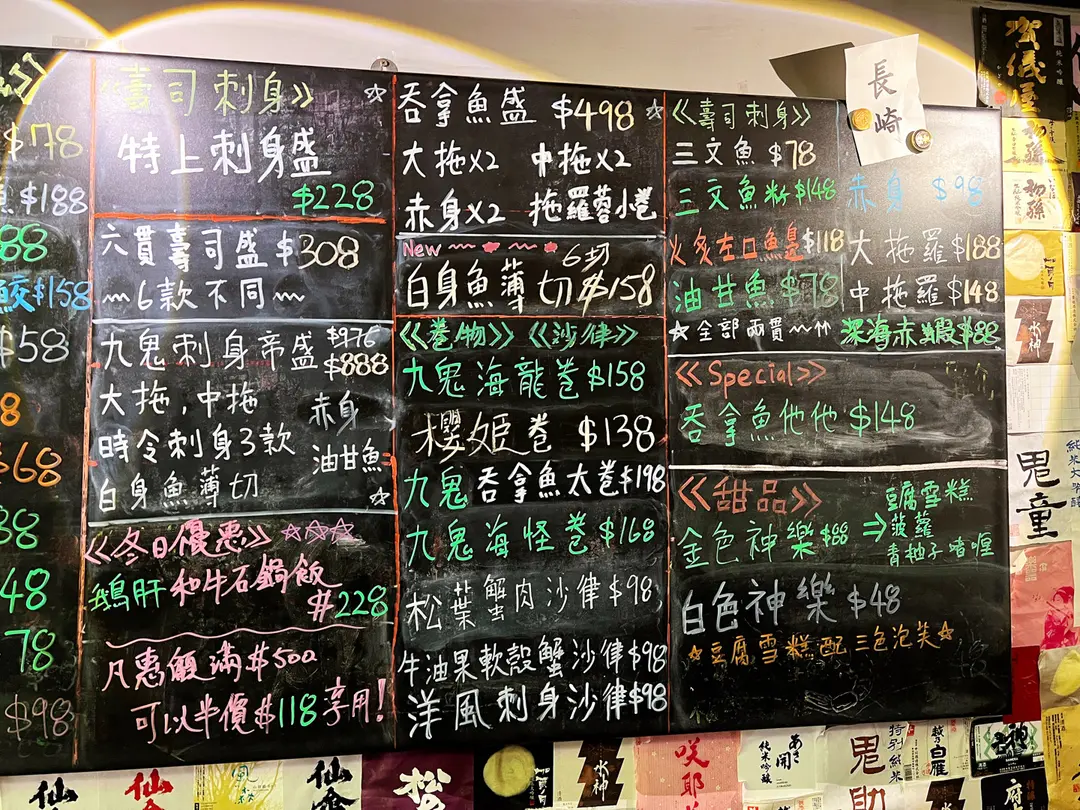 $78
$188
88
鮫$158
$58
8
$68
38
48
78
$98
《壽司刺身》
特上刺身盛
$228
六貫壽司盛 $308
~6款不同~
九鬼刺身帝盛 $976
$888
大拖,中拖 赤身
時令刺身3款 油甘魚
白身魚薄切 ☆
《冬日優惠》☆☆☆
鵝肝 和牛石鍋飯
$228
凡惠顧滿$500
可以半價$118享用!
☆ 吞拿魚盛 $498 ☆
大拖X2 中拖X2
赤身X2 拖羅蓉小卷
New
6切
白身魚薄切 $158
《卷物》《沙律》
九鬼海龍卷 $158
櫻姬卷 $138
九鬼吞拿魚太卷 $198
九鬼海怪卷 $168
松葉蟹肉沙律 $98
牛油果軟殼蟹沙律 $98
洋風刺身沙律 $98
《壽司刺身》
三文魚 $78
三文魚籽 $148 赤身 $98
火炙左口魚邊 $118 大拖羅 $188
油甘魚 $78 中拖羅 $148
☆全部兩貫~↑↑ 深海赤蝦 $88
《Special》
吞拿魚他他 $148
《甜品》
金色神樂 $88 ⇒ 豆腐雪糕
菠蘿
青柚子啫喱
白色神樂 $48
☆豆腐雪糕配三色泡芙☆
長崎
賀儀屋
純米吟醸
初孫
初孫
水神
鬼童
仙
仙
松の
水神
咲耶
あさ開
純米吟醸
鬼
特別純米
白雁
神
府